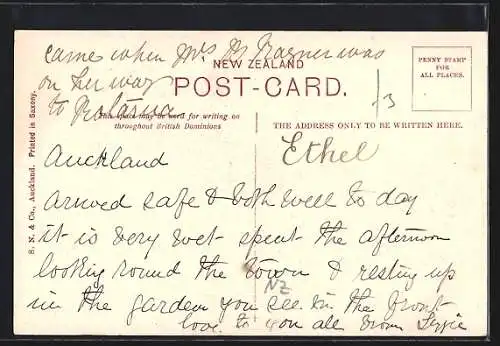 came when Mrs Dr Wagner was
NEW ZEALAND
on her way
POST-CARD.
to Rotorua
PENNY STAMP
FOR
ALL PLACES.
13
This space may be used for writing on
throughout British Dominions
THE ADDRESS ONLY TO BE WRITTEN HERE.
S. N. & Co., Auckland. Printed in Saxony.
Auckland
Ethel
arrived safe & both well to day
it is very wet spent the afternoon
looking round the town & resting up
NZ
in the garden you see in the front
love to you all from Lizzie